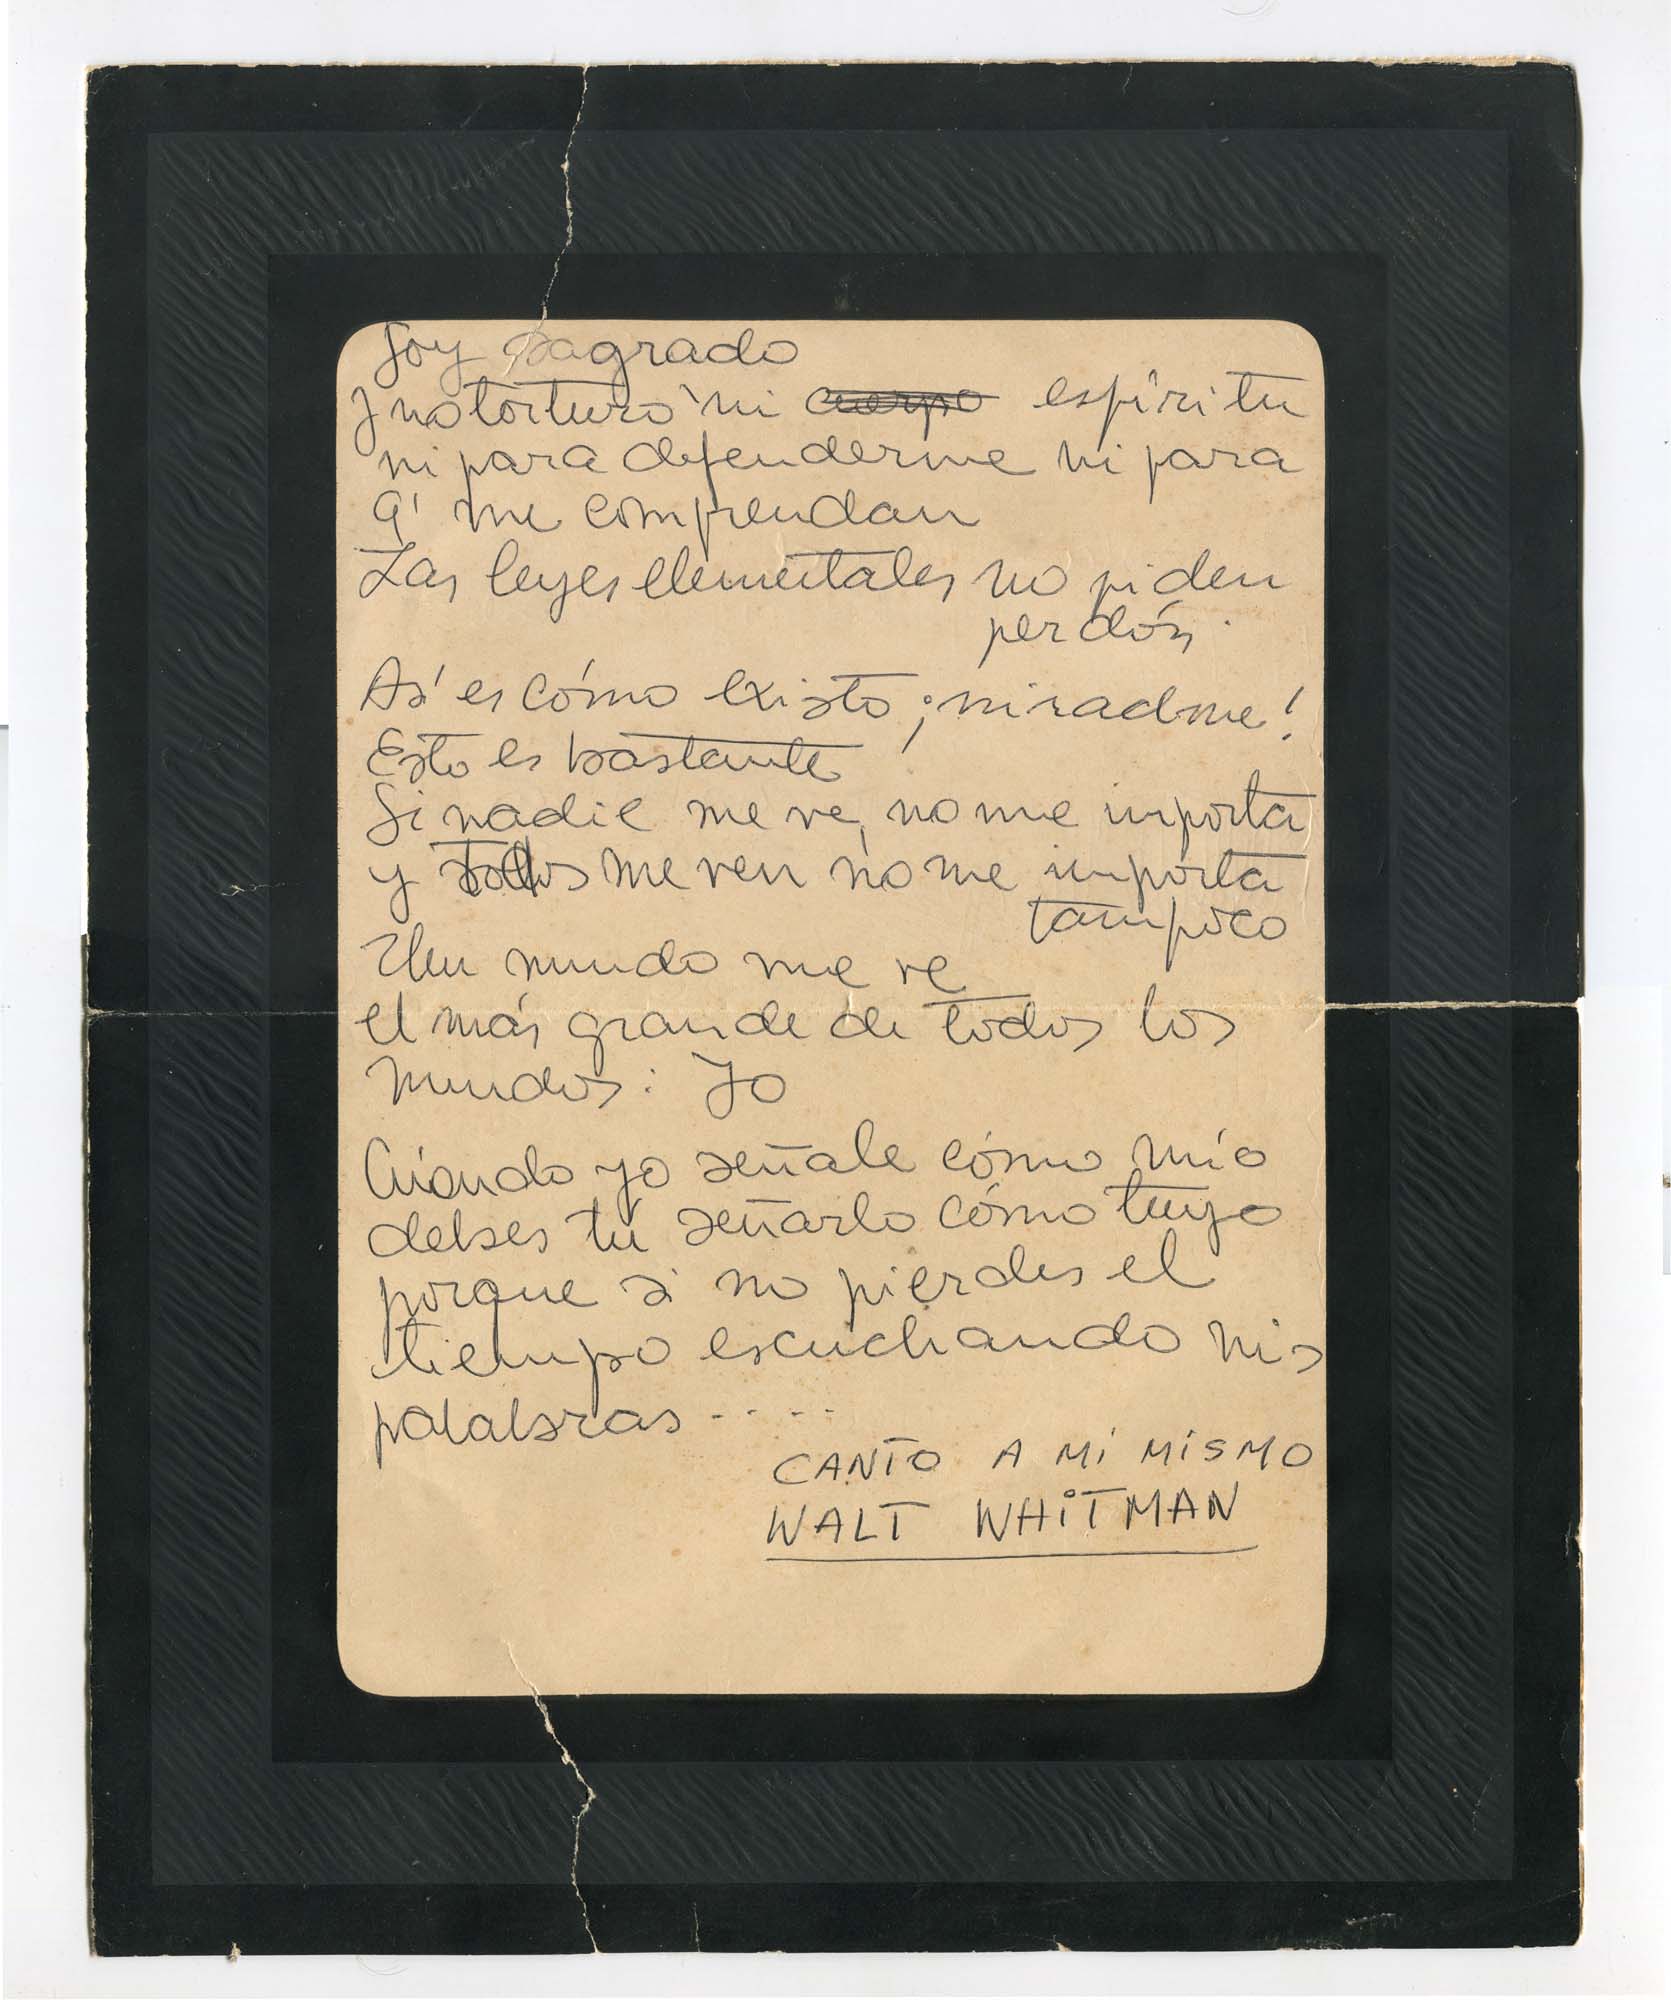 Soy sagrado
y no torturo mi cuerpo espíritu
ni para defenderme ni para
q' me comprendan
Las leyes elementales no piden
perdón.
Así es cómo existo ¡miradme!
Esto es bastante
Si nadie me ve, no me importa
y todos me ven no me importa
tampoco
Un mundo me ve
el más grande de todos los
mundos: Yo
Cuándo yo señale cómo mío
debes tú señarlo cómo tuyo
porque si no pierdes el
tiempo escuchando mis
palabras ....
CANTO A Mi MiSMO
WALT WHiTMAN